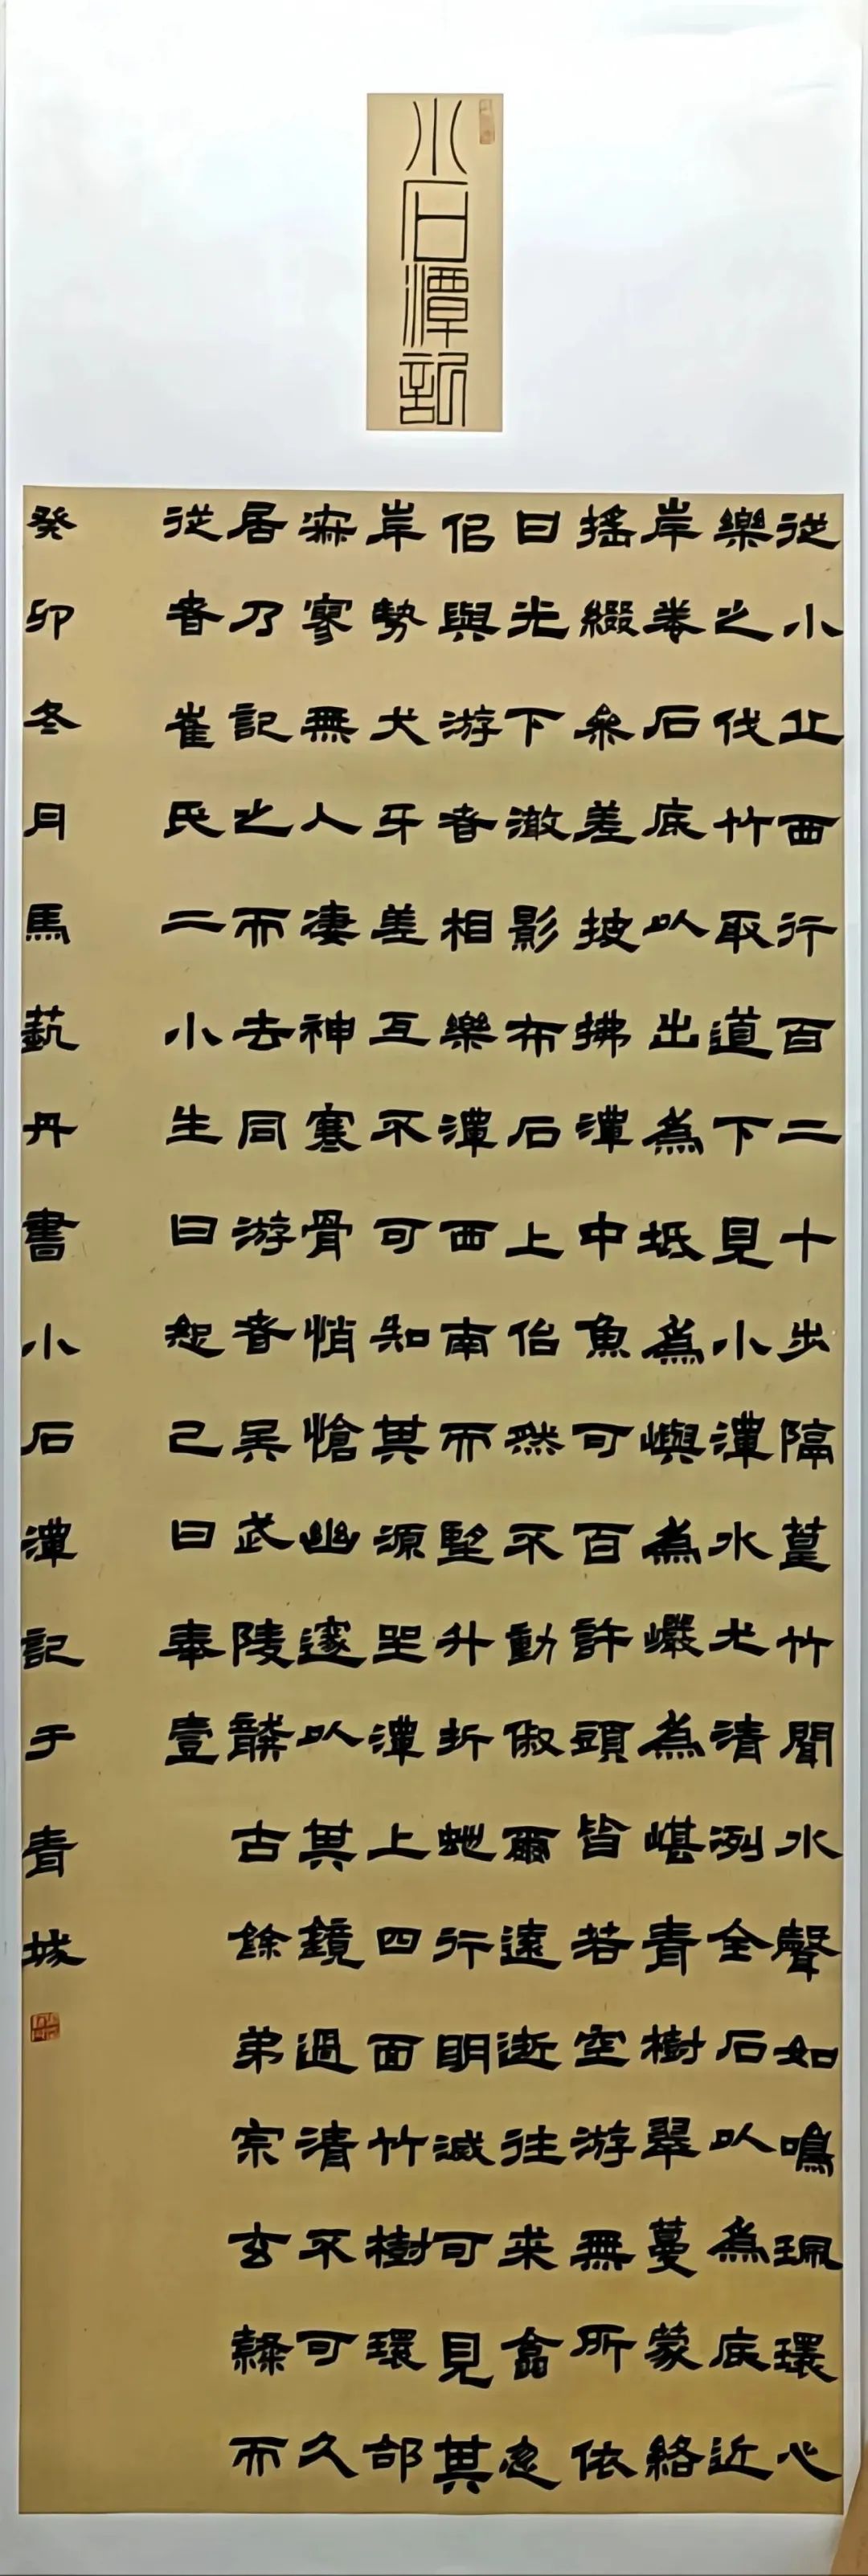 小石潭記
從小丘西行百二十步隔篁竹聞水聲如鳴珮環心
樂之伐竹取道下見小潭水尤清洌全石以為底近
岸卷石底以出為坻為嶼為巖為嵁青樹翠蔓蒙絡
搖綴參差披拂潭中魚可百許頭皆若空游無所依
日光下澈影布石上佁然不動俶爾遠逝往來翕忽
佀與游者相樂潭西南而望斗折蛇行明滅可見其
岸勢犬牙差互不可知其源坐潭上四面竹樹環郃
寂寥無人凄神寒骨悄愴幽邃以其鏡過清不可久
居乃記之而去同游者吳武陵龔古餘弟宗玄隸而
從者崔氏二小生曰恕己曰奉壹
癸卯冬月馬藝丹書小石潭記于青城